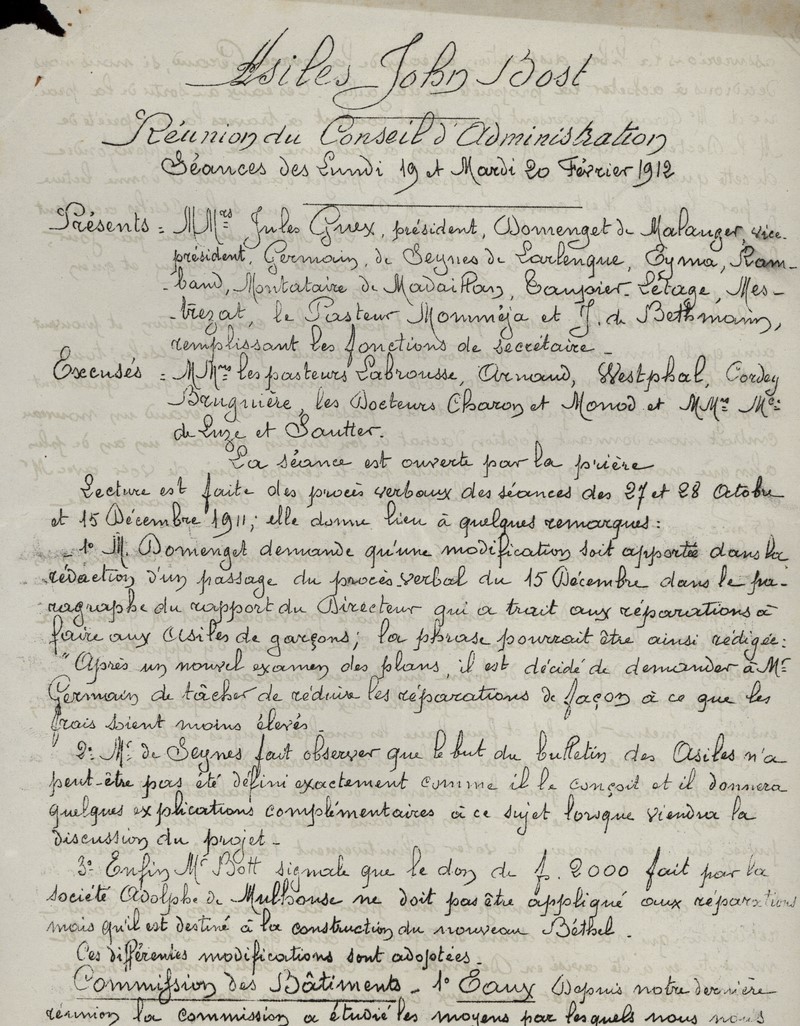 Asiles John Bost
Réunion du Conseil d'Administration
Séances des Lundi 19 et Mardi 20 Février 1912
Présents = MMrs Jules Guex, président, Domenget de Malauger, vice-
président, Germain, de Seynes de Larlenque, Eyma, Ram-
-baud, Montataire de Madaillan, Taupier-Létage, Mes-
-trezat, le Pasteur Momméja et J. de Bethmann,
remplissant les fonctions de secrétaire -
Excusés = MMrs les pasteurs Labrousse, Arnaud, Westphal, Cordey
Bruguière, les Docteurs Charon et Monod et MMrs
de Luze et Sautter.
La séance est ouverte par la prière
Lecture est faite des procès verbaux des séances des 27 et 28 Octobre
et 15 Décembre 1911; elle donne lieu à quelques remarques :
- 1° M. Domenget demande qu'une modification soit apportée dans la
rédaction d'un passage du procès-verbal du 15 Décembre dans le pa-
ragraphe du rapport du Directeur qui a trait aux réparations à
faire aux Asiles de garçons; la phrase pourrait être ainsi rédigée:
"Après un nouvel examen des plans, il est décidé de demander à Mr
Germain de tâcher de réduire les réparations de façon à ce que les
frais soient moins élevés.
2° Mr de Seynes fait observer que le but du bulletin des Asiles n'a
peut-être pas été défini exactement comme il le conçoit et il donnera
quelques explications complémentaires à ce sujet lorsque viendra la
discussion du projet -
3° Enfin Mr Bott signale que le don de f. 2000 fait par la
société Adolphe de Mulhouse ne doit pas être appliqué aux réparations
mais qu'il est destiné à la construction du nouveau Béthel.
Ces différentes modifications sont adoptées.
Commission des Bâtiments - 1° Eaux Depuis notre dernière
réunion la commission a étudié les moyens par lesquels nous nous